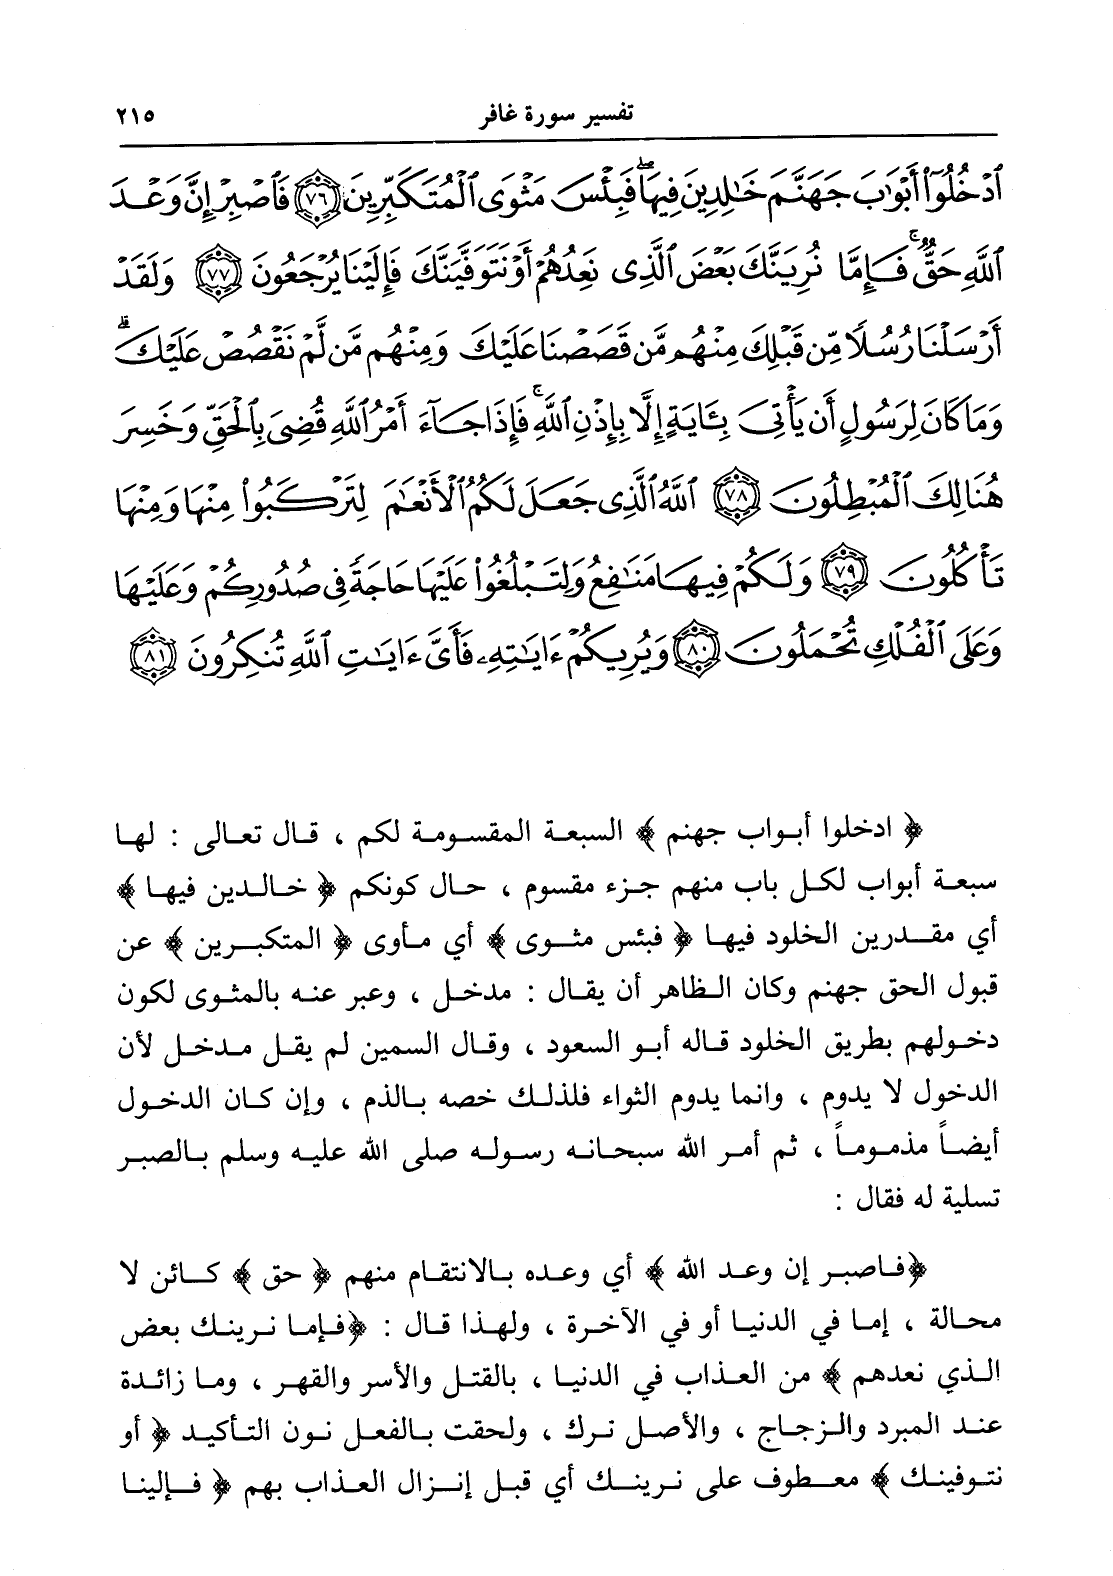 تفسير سورة غافر ٢١٥
ٱدْخُلُوٓا۟ أَبْوَٰبَ جَهَنَّمَ خَٰلِدِينَ فِيهَا ۖ فَبِئْسَ مَثْوَى ٱلْمُتَكَبِّرِينَ ﴿٧٦﴾ فَٱصْبِرْ إِنَّ وَعْدَ
ٱللَّهِ حَقٌّ ۚ فَإِمَّا نُرِيَنَّكَ بَعْضَ ٱلَّذِى نَعِدُهُمْ أَوْ نَتَوَفَّيَنَّكَ فَإِلَيْنَا يُرْجَعُونَ ﴿٧٧﴾ وَلَقَدْ
أَرْسَلْنَا رُسُلًا مِّن قَبْلِكَ مِنْهُم مَّن قَصَصْنَا عَلَيْكَ وَمِنْهُم مَّن لَّمْ نَقْصُصْ عَلَيْكَ ۗ
وَمَا كَانَ لِرَسُولٍ أَن يَأْتِىَ بِـَٔايَةٍ إِلَّا بِإِذْنِ ٱللَّهِ ۚ فَإِذَا جَآءَ أَمْرُ ٱللَّهِ قُضِىَ بِٱلْحَقِّ وَخَسِرَ
هُنَالِكَ ٱلْمُبْطِلُونَ ﴿٧٨﴾ ٱللَّهُ ٱلَّذِى جَعَلَ لَكُمُ ٱلْأَنْعَٰمَ لِتَرْكَبُوا۟ مِنْهَا وَمِنْهَا
تَأْكُلُونَ ﴿٧٩﴾ وَلَكُمْ فِيهَا مَنَٰفِعُ وَلِتَبْلُغُوا۟ عَلَيْهَا حَاجَةً فِى صُدُورِكُمْ وَعَلَيْهَا
وَعَلَى ٱلْفُلْكِ تُحْمَلُونَ ﴿٨٠﴾ وَيُرِيكُمْ ءَايَٰتِهِۦ فَأَىَّ ءَايَٰتِ ٱللَّهِ تُنكِرُونَ ﴿٨١﴾
﴿ ادخلوا أبواب جهنم ﴾ السبعة المقسومة لكم ، قال تعالى : لها
سبعة أبواب لكل باب منهم جزء مقسوم ، حال كونكم ﴿ خالدين فيها ﴾
أي مقدرين الخلود فيها ﴿ فبئس مثوى ﴾ أي مأوى ﴿ المتكبرين ﴾ عن
قبول الحق جهنم وكان الظاهر أن يقال : مدخل ، وعبر عنه بالمثوى لكون
دخولهم بطريق الخلود قاله أبو السعود ، وقال السمين لم يقل مدخل لأن
الدخول لا يدوم ، وانما يدوم الثواء فلذلك خصه بالذم ، وإن كان الدخول
أيضاً مذموماً ، ثم أمر الله سبحانه رسوله صلى الله عليه وسلم بالصبر
تسلية له فقال :
﴿فاصبر إن وعد الله ﴾ أي وعده بالانتقام منهم ﴿ حق ﴾ كائن لا
محالة ، إما في الدنيا أو في الآخرة ، ولهذا قال : ﴿فإما نرينك بعض
الذي نعدهم ﴾ من العذاب في الدنيا ، بالقتل والأسر والقهر ، وما زائدة
عند المبرد والزجاج ، والأصل نرك ، ولحقت بالفعل نون التأكيد ﴿ أو
نتوفينك ﴾ معطوف على نرينك أي قبل إنزال العذاب بهم ﴿ فإلينا